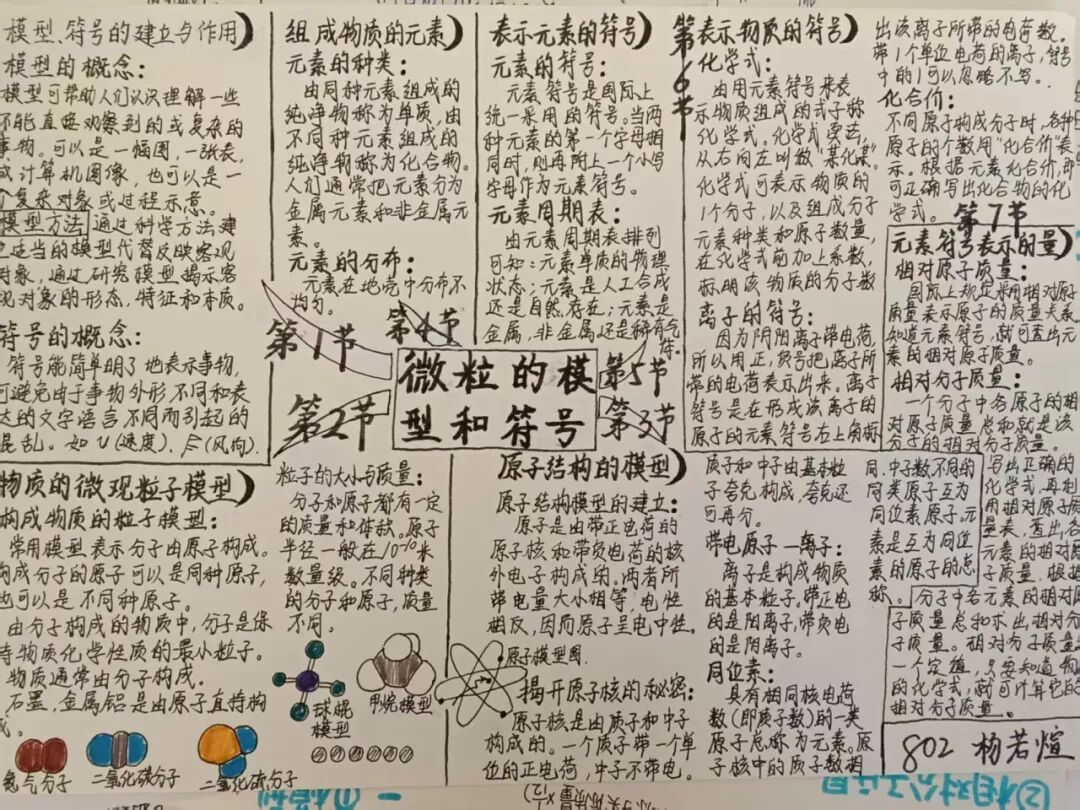 模型、符号的建立与作用
模型的概念：
模型可帮助人们认识理解一些
不能直接观察到的或复杂的
事物。可以是一幅图，一张表，
或计算机图像，也可以是一
个复杂对象或过程示意。
模型方法 通过科学方法建
适当的模型代替反映客观
对象，通过研究模型揭示客
观对象的形态，特征和本质。
符号的概念：
符号能简单明了地表示事物，
可避免由于事物外形不同和表
达的文字语言不同而引起的
混乱。如 v(速度)、F(风向).
组成物质的元素
元素的种类：
由同种元素组成的
纯净物称为单质，由
不同种元素组成的
纯净物称为化合物。
人们通常把元素分为
金属元素和非金属元
素。
元素的分布：
元素在地壳中分布不
均匀。
表示元素的符号
元素的符号：
元素符号是国际上
统一采用的符号。当两
种元素的第一个字母相
同时，则再附上一个小写
字母作为元素符号。
元素周期表：
由元素周期表排列
可知：元素单质的物理
状态；元素是人工合成
还是自然存在；元素是
金属，非金属还是稀有气
体。
第6节
表示物质的符号
化学式：
由用元素符号来表
示物质组成的式子称
化学式。化学式，要
从右向左叫做“某化某”
化学式可表示物质的
1个分子，以及组成分子
元素种类和原子数量，
在化学式前加上系数，
标明该物质的分子数
离子的符号：
因为阴阳离子带电荷，
所以用正，负号把离子所
带的电荷表示出来。离子
符号是在形成该离子的
原子的元素符号右上角标
出该离子所带的电荷数。
带1个单位电荷的离子，符号
中的1可以忽略不写。
化合价：
不同原子构成分子时，各种
原子的个数用“化合价”表
示。根据元素化合价，即
可正确写出化合物的化
学式。
第7节
元素符号表示的量
相对原子质量：
国际上规定采用相对原子
质量表示原子的质量关系，
知道元素符号，就可查出元
素的相对原子质量。
相对分子质量：
一个分子中各原子的相
对原子质量总和就是该
分子的相对分子质量。
写出正确的
化学式，再利
用相对原子质
量表，查出各
元素的相对原
子质量，根据
分子中各元素的相对原
子质量总和求出相对分
子质量。相对分子质量
一个定值，只要知道物
的化学式，就可计算它的
相对分子质量。
第1节
第4节
第2节
微粒的模
型和符号
第5节
第3节
物质的微观粒子模型
构成物质的粒子模型：
常用模型表示分子由原子构成。
构成分子的原子可以是同种原子，
也可以是不同种原子。
由分子构成的物质中，分子是保
持物质化学性质的最小粒子。
物质通常由分子构成。
石墨，金属铝是由原子直接构
成。
氢气分子
二氧化碳分子
二氧化硫分子
粒子的大小与质量：
分子和原子都有一定
的质量和体积。原子
半径一般在10⁻¹⁰米
数量级。不同种类
的分子和原子，质量
不同。
球棍
模型
甲烷模型
原子结构的模型
原子结构模型的建立：
原子是由带正电荷的
原子核和带负电荷的核
外电子构成的。两者所
带电量大小相等，电性
相反，因而原子呈电中性。
原子模型图.
揭开原子核的秘密：
原子核是由质子和中子
构成的。一个质子带一个单
位的正电荷，中子不带电。
质子和中子由基本粒
子夸克构成，夸克还
可再分。
带电原子—离子：
离子是构成物质
的基本粒子。带正电
的是阳离子，带负电
的是阴离子。
同位素：
具有相同核电荷
数(即质子数)的一类
原子总称为元素。原
子核中的质子数相
同、中子数不同的
同类原子互为
同位素原子，元
素是互为同位
素的原子的总
称。
802 杨若煊